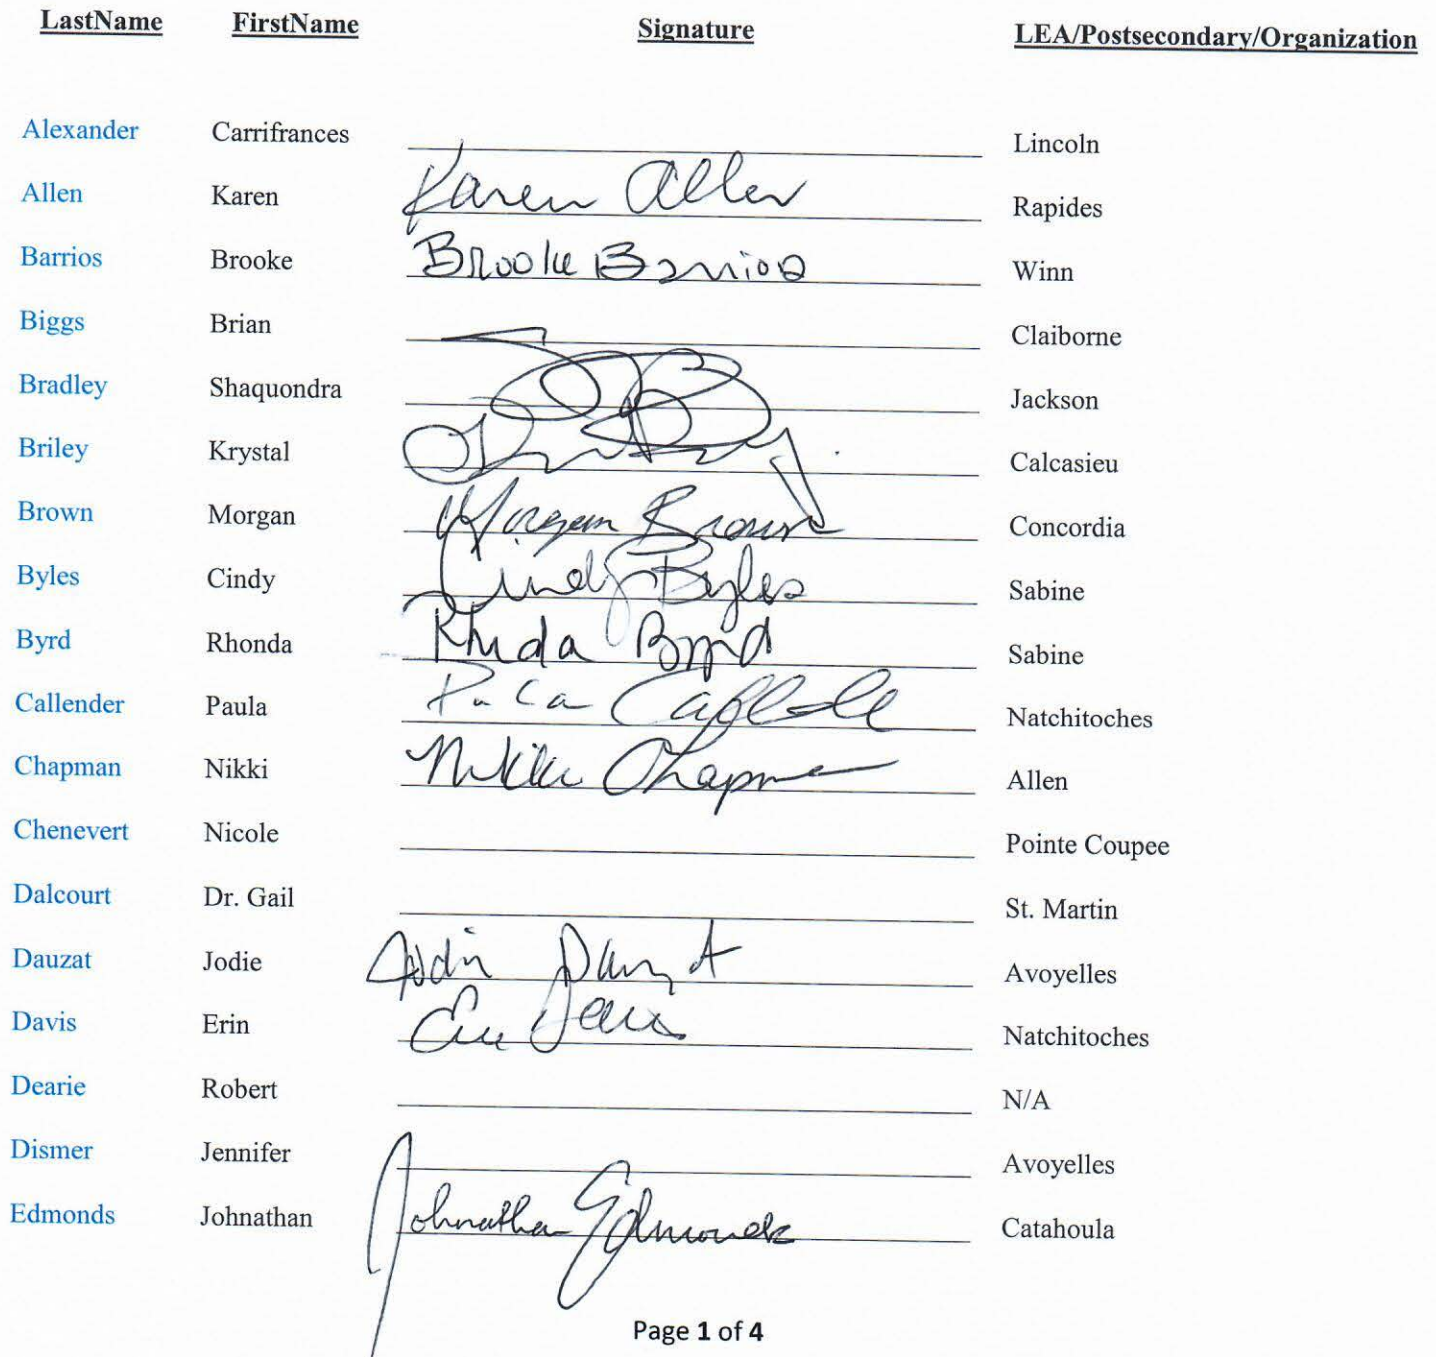 LastName FirstName Signature LEA/Postsecondary/Organization
Alexander Carrifrances Lincoln
Allen Karen Karen Allen Rapides
Barrios Brooke Brooke Barrios Winn
Biggs Brian Claiborne
Bradley Shaquondra Jackson
Briley Krystal Calcasieu
Brown Morgan Morgan Brown Concordia
Byles Cindy Cindy Byles Sabine
Byrd Rhonda Rhonda Byrd Sabine
Callender Paula Natchitoches
Chapman Nikki Nikki Chapman Allen
Chenevert Nicole Pointe Coupee
Dalcourt Dr. Gail St. Martin
Dauzat Jodie Jodie Dauzat Avoyelles
Davis Erin Erin Davis Natchitoches
Dearie Robert N/A
Dismer Jennifer Avoyelles
Edmonds Johnathan Johnathan Edmonds Catahoula
Page 1 of 4